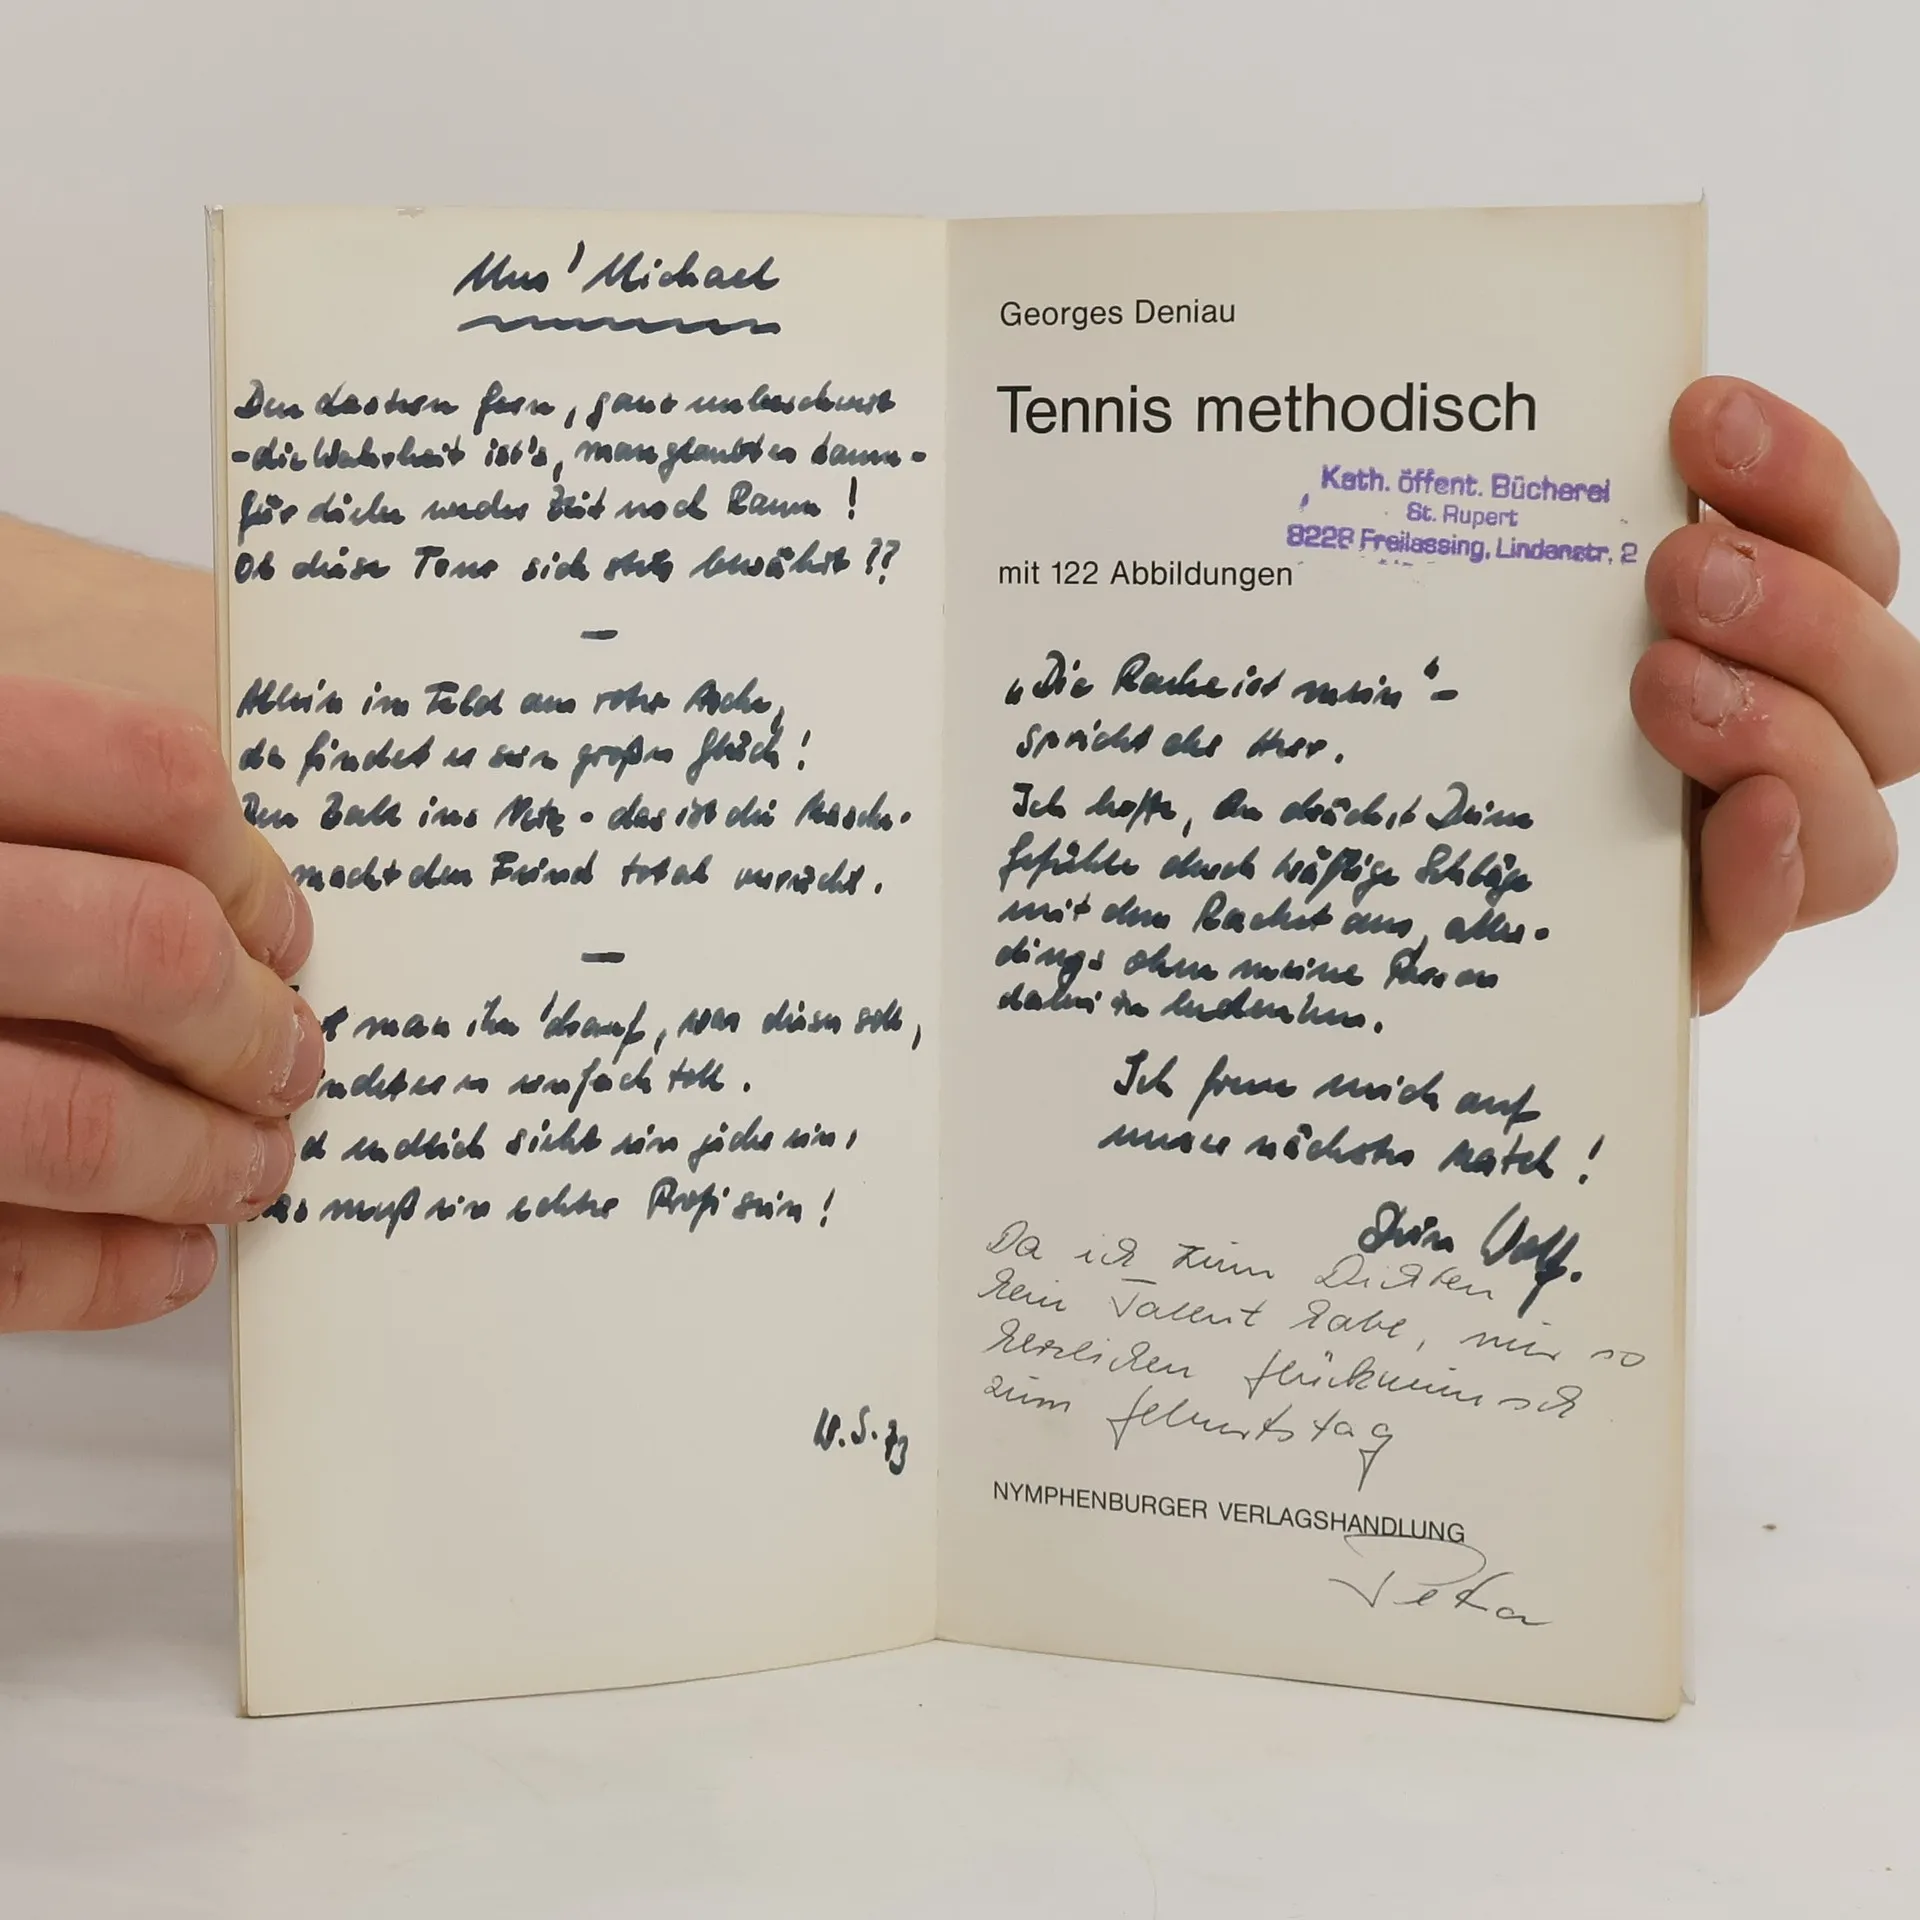 Uns' Michael
Den Lastern fern, ganz unbeschwert
-die Wahrheit ist's, man glaubt es kaum-
für diese weder Zeit noch Raum!
Ob diese These sich stets bewährt??
—
Allein im Feld auf roter Asche,
da findet er sein großes Glück!
Den Ball ins Netz - das ist die Masche -
macht den Feind total verrückt.
—
man ihm 'drauf, was dieses soll,
findet er es einfach toll.
endlich sieht ein jeder ein,
das muß ein echter Profi sein!
W. S. 73
Georges Deniau
Tennis methodisch
Kath. öffent. Bücherei
St. Rupert
8228 Freilassing, Lindenstr. 2
mit 122 Abbildungen
"Die Rache ist mein" -
spricht der Herr.
Ich hoffe, Du drückst Deine
Gefühle durch kräftige Schläge
mit dem Racket aus, aller-
dings ohne meine Person
dabei zu bedenken.
Ich freue mich auf
unser nächstes Match!
Dein Wolf.
Da ich zum Dichten
kein Talent habe, nur so
herzlichen Glückwunsch
zum Geburtstag
NYMPHENBURGER VERLAGSHANDLUNG
Peter